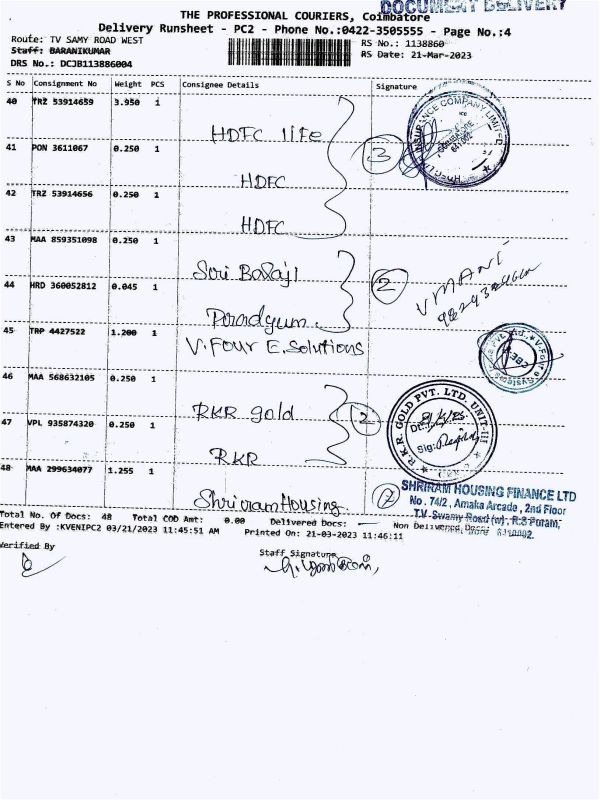 DOCUMENT DELIVERY
THE PROFESSIONAL COURIERS, Coimbatore
Delivery Runsheet - PC2 - Phone No.:0422-3505555 - Page No.:4
Route: TV SAMY ROAD WEST
RS No.: 1138860
Staff: BARANIKUMAR
RS Date: 21-Mar-2023
DRS No.: DCJB113886004
S No Consignment No Weight PCS Consignee Details Signature
40 TRZ 53914659 3.950 1
HDFC life
41 PON 3611067 0.250 1
3
HDFC
42 TRZ 53914656 0.250 1
HDFC
43 MAA 859351098 0.250 1
Sori Balaji
44 HRD 360052812 0.045 1
2
V MANI
45 TRP 4427522 1.200 1
V. Four E. Solutions
46 MAA 568632105 0.250 1
RKR gold
2
R.K.R. GOLD PVT. LTD. UNIT-III
47 VPL 935874320 0.250 1
RKR
48 MAA 299634077 1.255 1
Shriram Housing
SHRIRAM HOUSING FINANCE LTD
No. 74/2, Amaka Arcade, 2nd Floor
T.V. Swamy Road (w), R.S Puram,
Total No. Of Docs: 48 Total COD Amt: 0.00 Delivered Docs: Non Delivered Docs:
Entered By :KVENIPC2 03/21/2023 11:45:51 AM Printed On: 21-03-2023 11:46:11
Verified By
Staff Signature